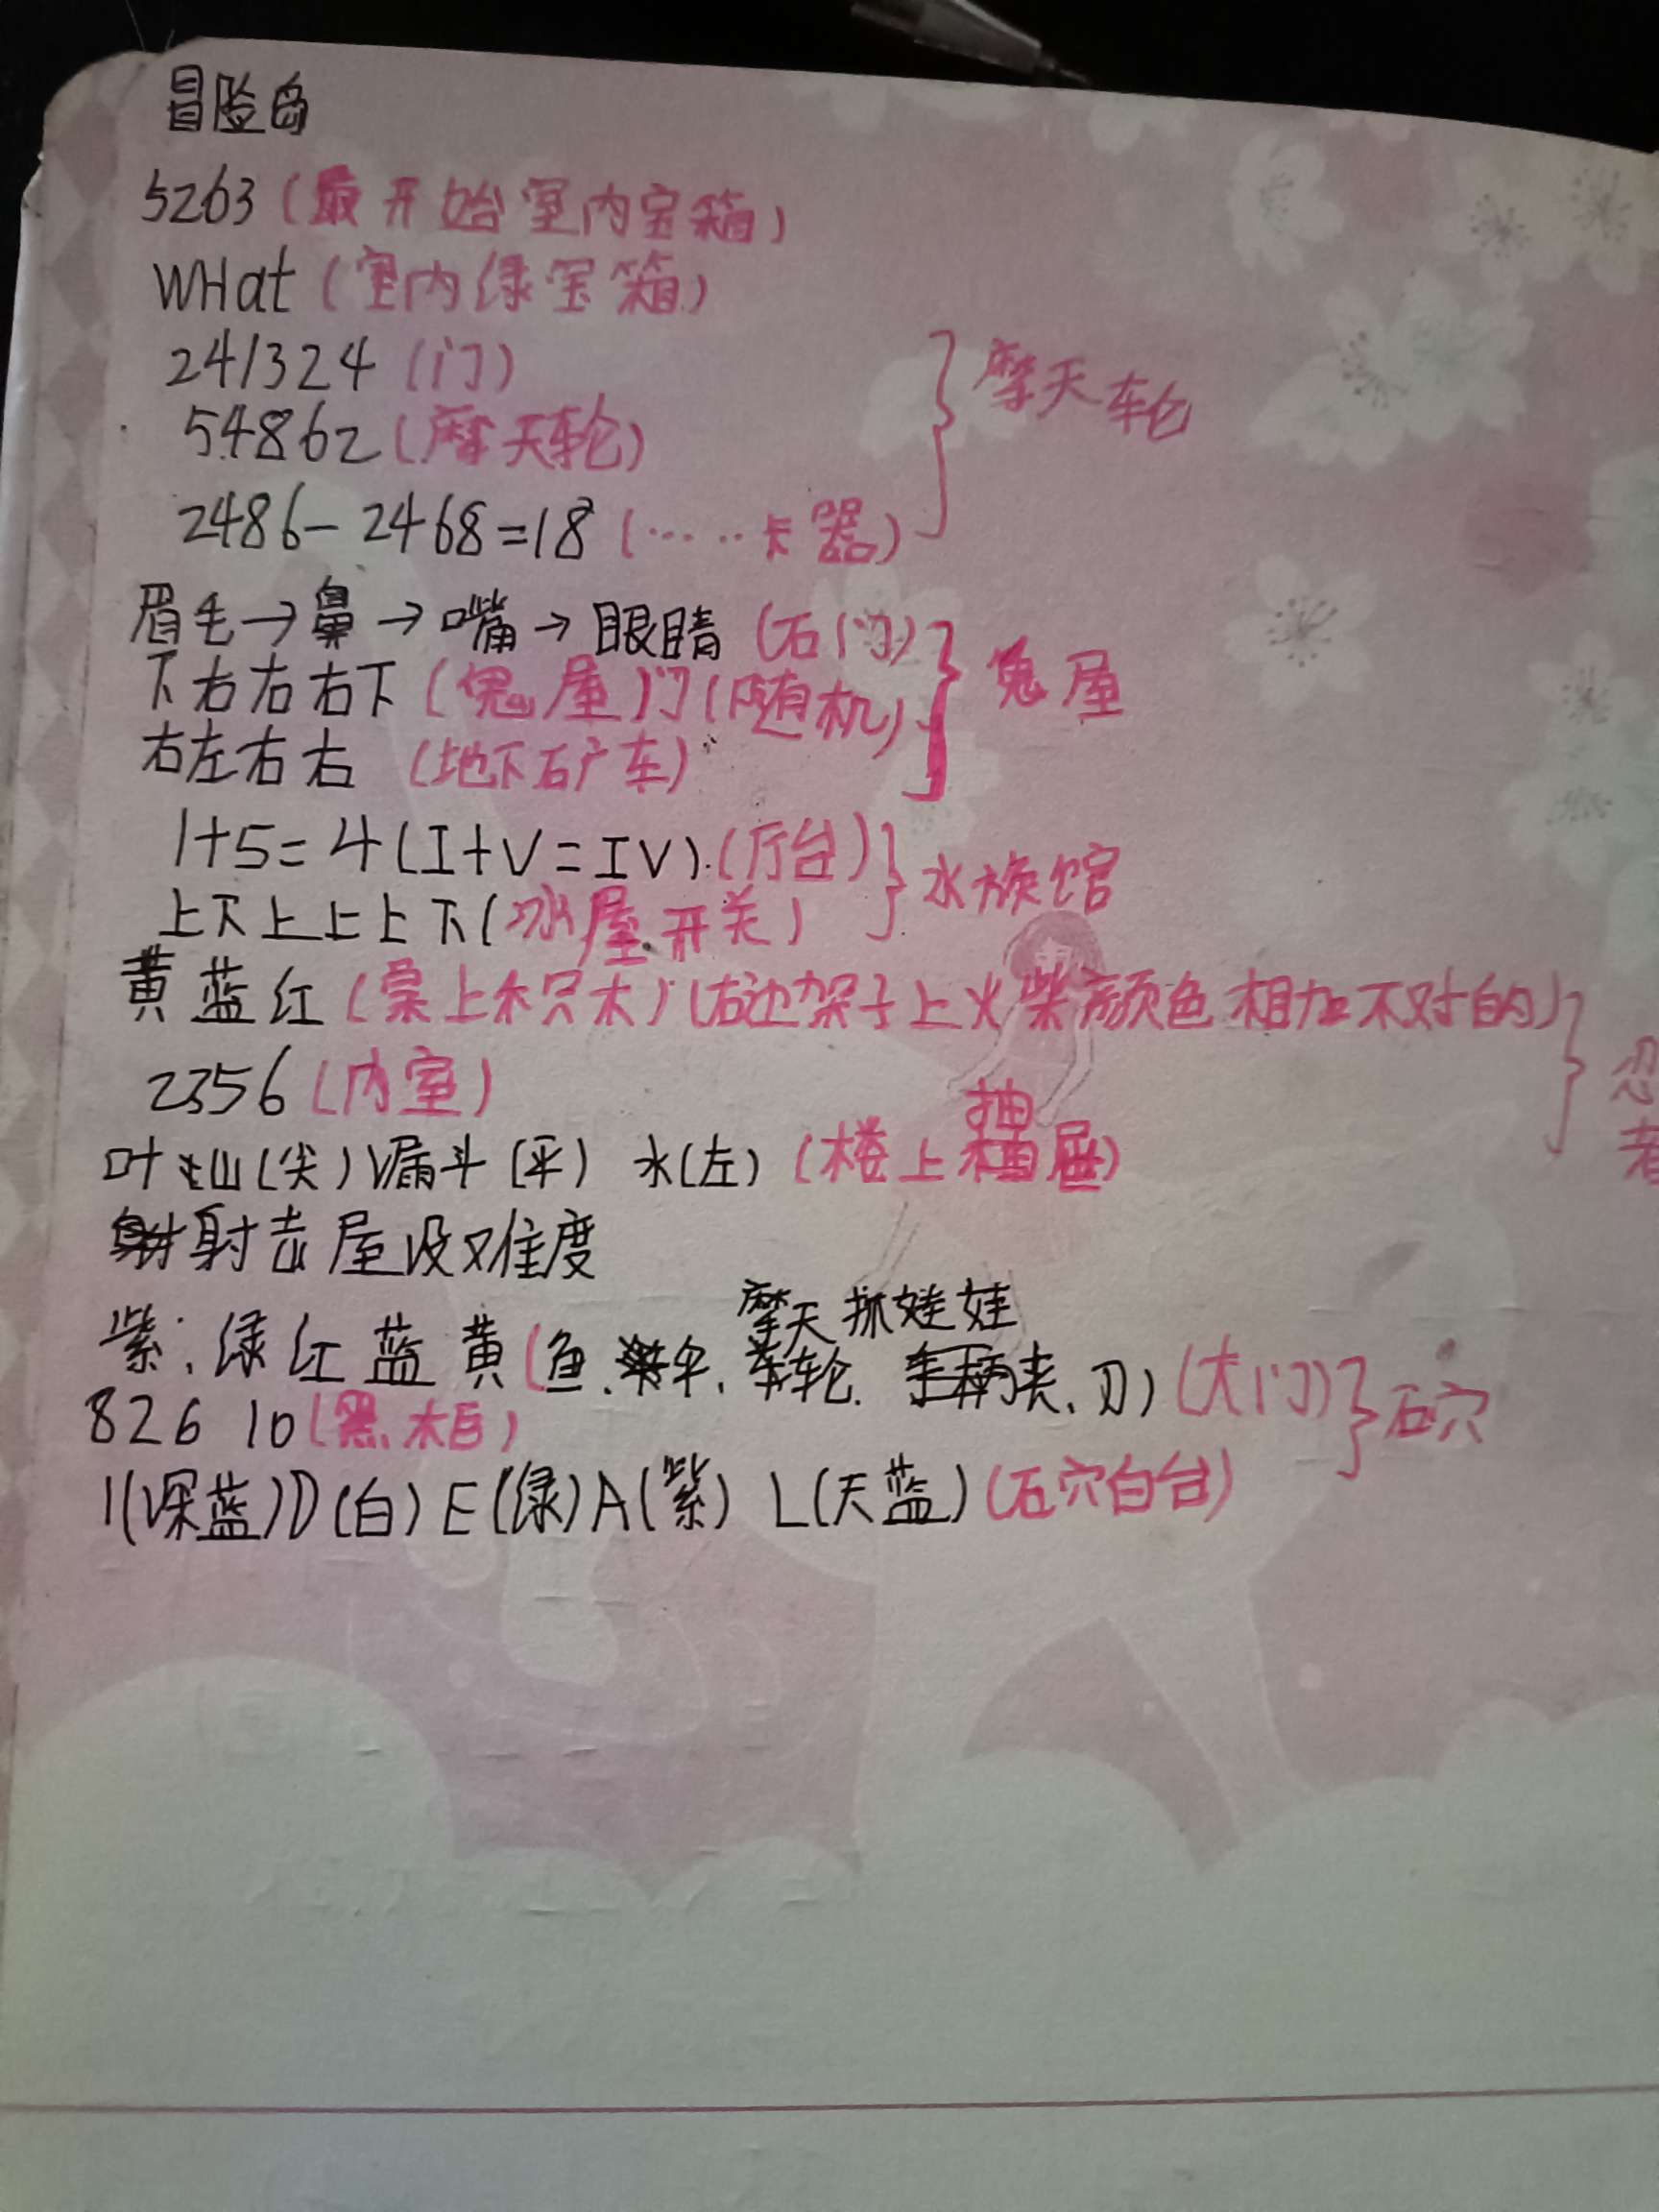 冒险岛
5263(最开始室内宝箱)
WHat(室内绿宝箱)
241324(门)
54862(摩天轮)
2486-2468=18(……卡器)
摩天轮
眉毛→鼻→嘴→眼睛(石门)
下右右右下(鬼屋)门(随机)
右左右右(地下石广车)
鬼屋
1+5=4(I+V=IV).(厅台)
上下上上上下(冰屋开关)
水族馆
黄蓝红(桌上木只木)(右边架子上火柴颜色相加不对的)
2356(内室)
忍者
叶火山(尖)漏斗(平) 水(左)(楼上抽屉)
射击屋没难度
摩天 抓娃娃
紫.绿红蓝黄(鱼、伞、轮、刀)(大门)
826 10(黑木白)
石穴
I(深蓝)D(白)E(绿)A(紫) L(天蓝)(石穴白台)